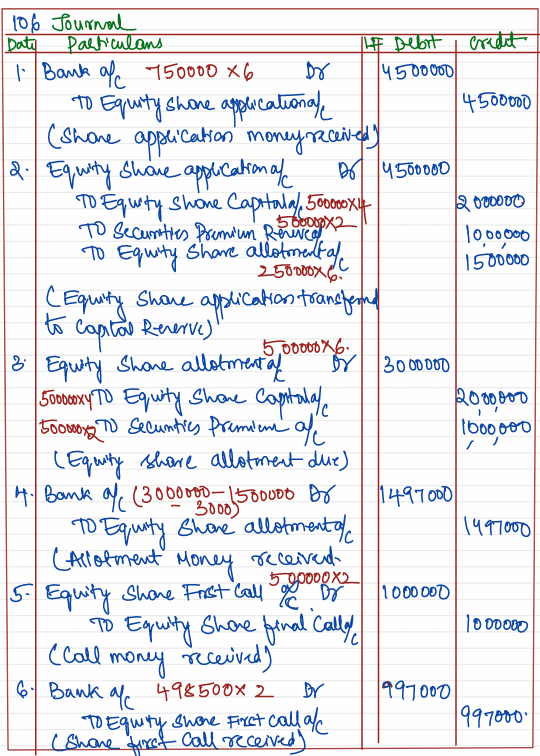 106 Journal
Date Particulars LF Debit Credit
1. Bank a/c 750000 × 6 Dr 4500000
To Equity Share application a/c 4500000
(Share application money received)
2. Equity Share application a/c Dr 4500000
To Equity Share Capital a/c 500000×4 2000000
500000×2
To Securities Premium Reserve 1000000
To Equity Share allotment a/c 1500000
250000×6.
(Equity Share application transferred
to Capital Reserve)
500000×6.
3. Equity Share allotment a/c Dr 3000000
500000×4 To Equity Share Capital a/c 2000000
500000×2 To Securities Premium a/c 1000000
(Equity share allotment due)
4. Bank a/c (3000000-1500000 Dr 1497000
- 3000)
To Equity Share allotment a/c 1497000
(Allotment Money received.
500000×2
5. Equity Share First Call a/c Dr 1000000
To Equity Share final Call a/c 1000000
(Call money received)
6. Bank a/c 498500 × 2 Dr 997000
To Equity Share First call a/c 997000.
(Share first call received)